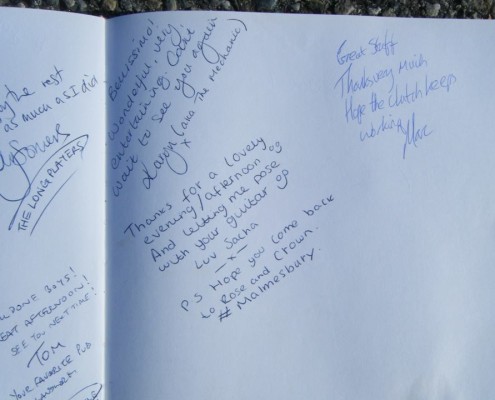 the rest
as much as I did
THE LONG PLAYERS
BOYS!
AFTERNOON!
SEE YOU NEXT TIME!
TOM
YOUR FAVOURITE PUB
Bellissimo!
Wonderful, very
entertaining. Can't
wait to see you again
x
(aka The Mechanic)
Thanks for a lovely
evening/afternoon
And letting me pose
with your guitar
Luv Sacha
x
PS Hope you come back
to Rose and Crown.
#Malmesbury.
Great Stuff
Thanks very much
Hope the clutch keeps
working
Marc